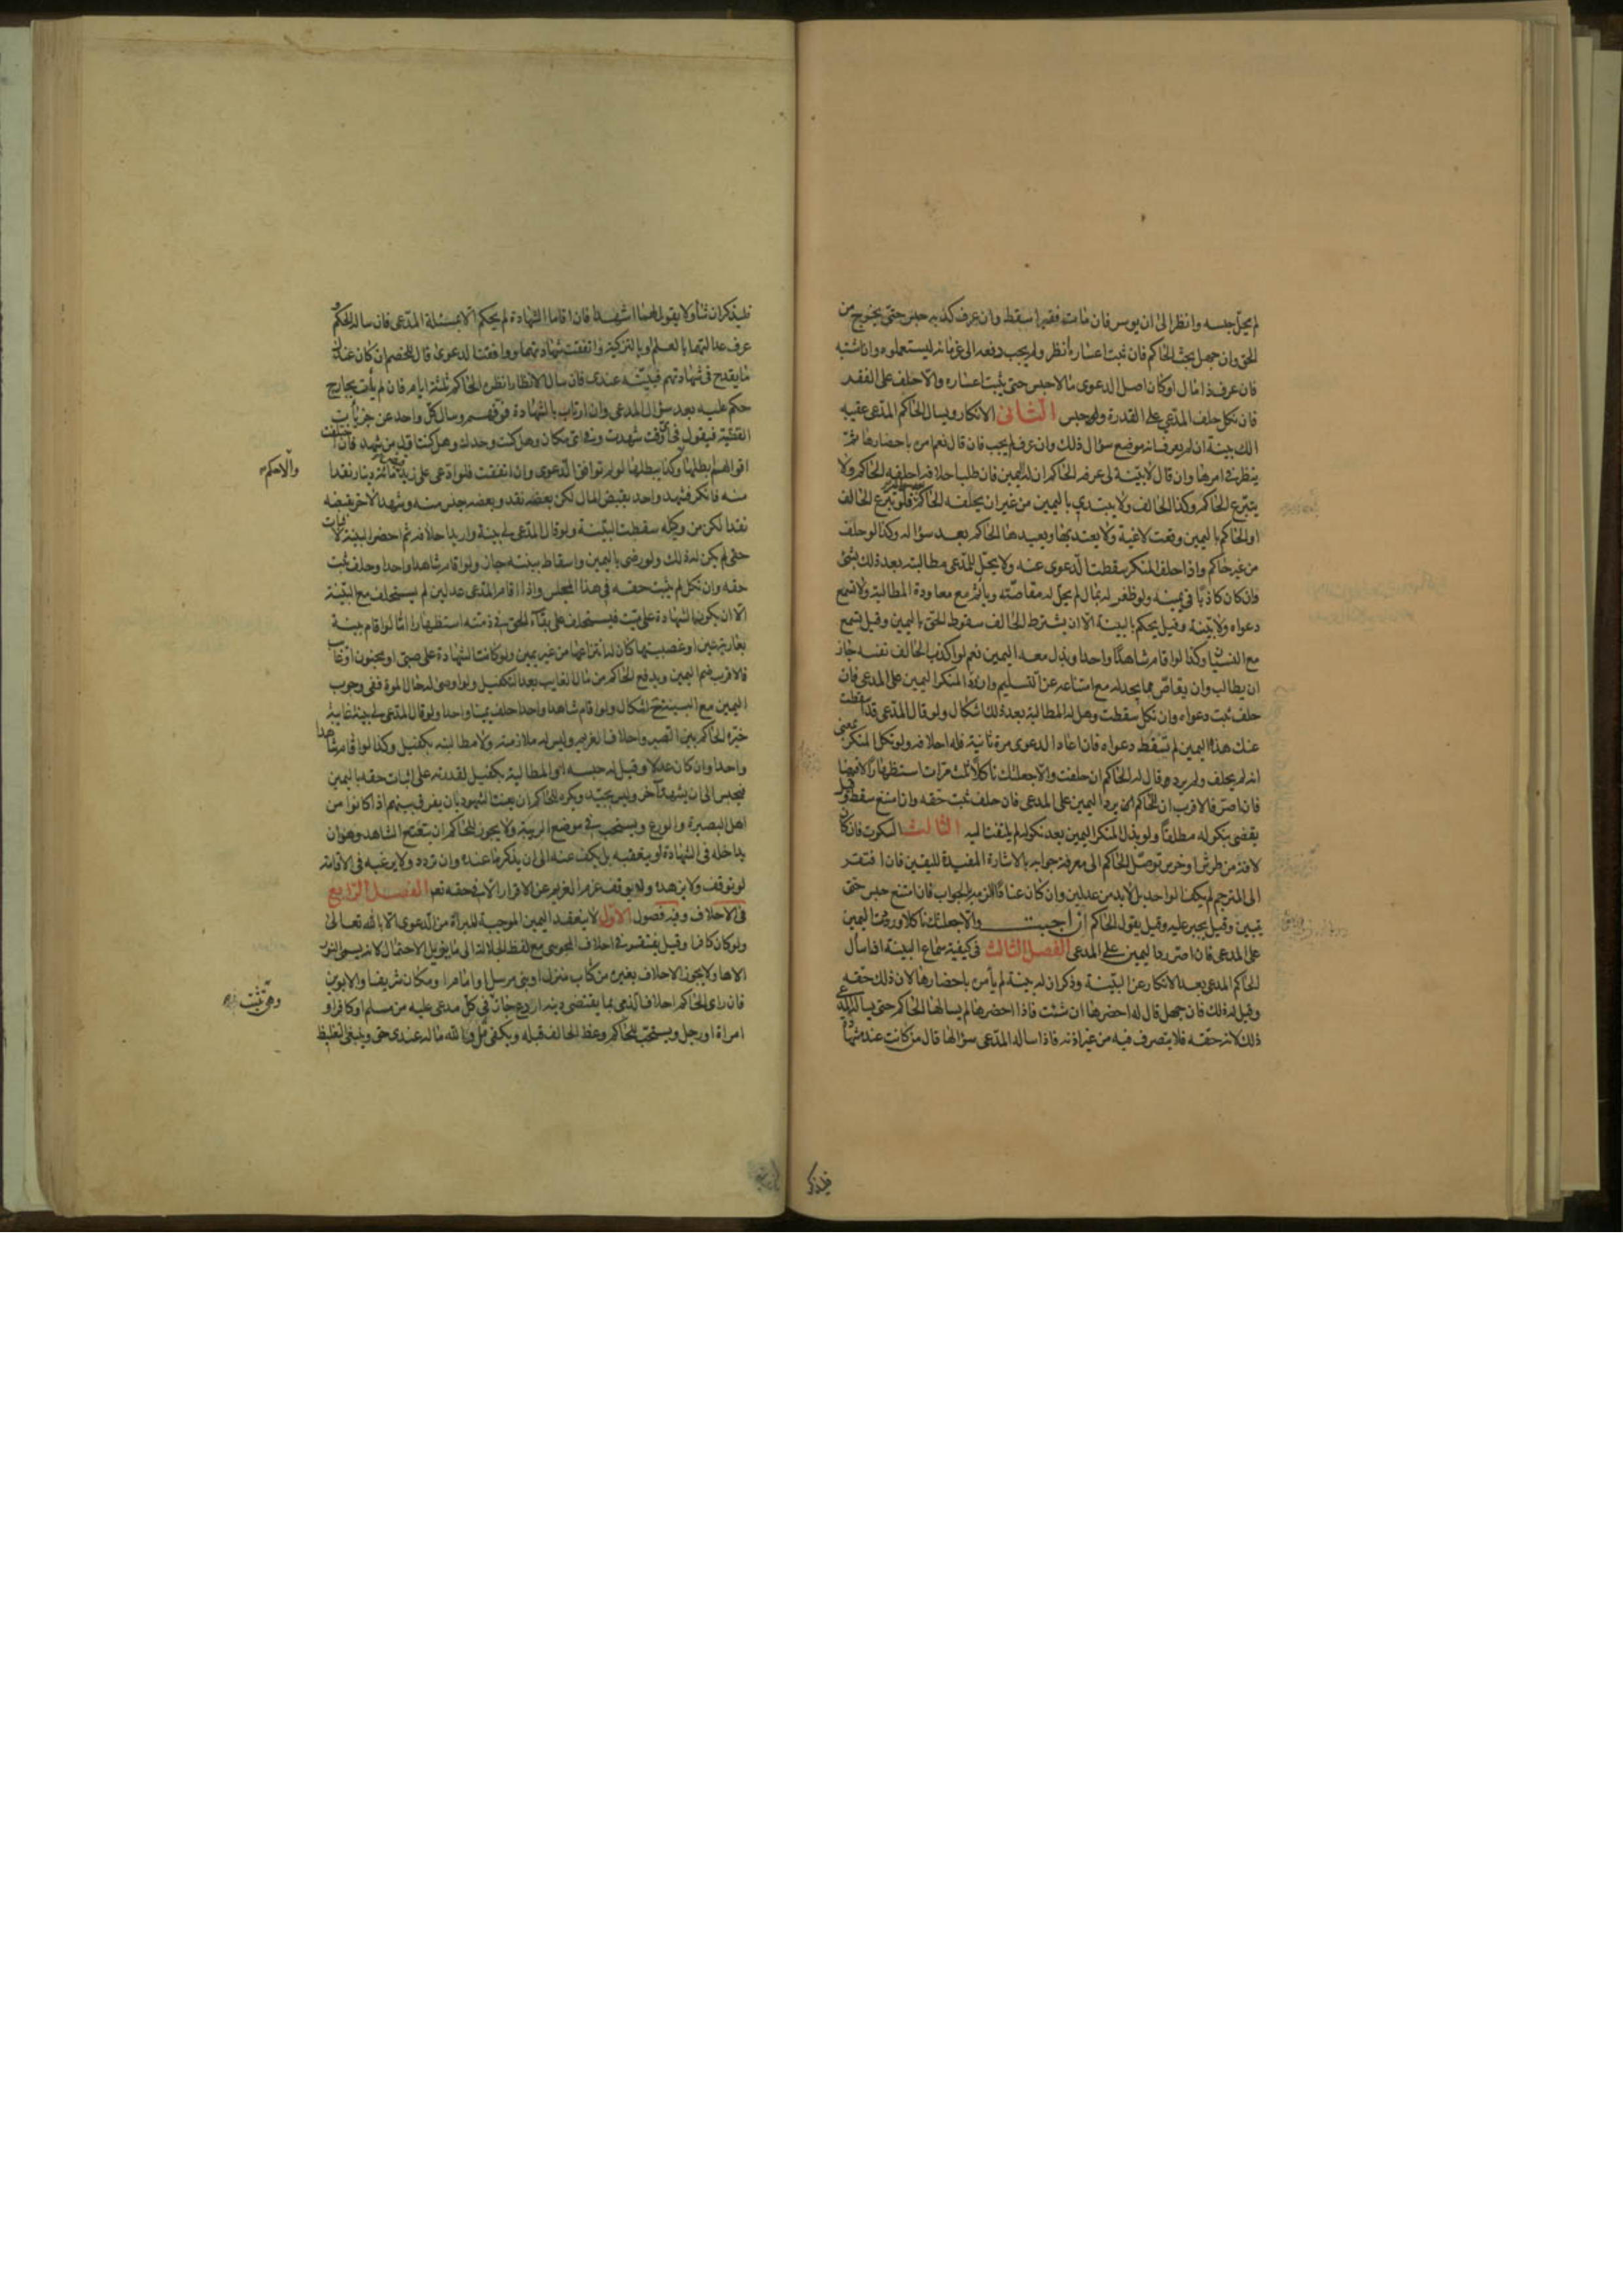 لم يحل حبسه وانظر الى ان يوسر فان مات فقيرا سقط وان عرف كذبه حبس حتى يخرج من
الحق وان جهل بحث الحاكم فان ثبت اعساره أنظر ولم يجب دفعه الى غرمائه ليستعملوه وان اشتبه
فان عرف ذا مال او كان اصل الدعوى مالا حبس حتى يثبت اعساره والا حلف على الفقر
فان نكل حلف المدعي على القدرة وحبس الثاني الانكار ويسال الحاكم المدعي عقيبه
الك بينة ان لم يعرف انه موضع سؤال ذلك وان عرف لم يجب فان قال نعم امر باحضارها ثم
ينظر في امرها وان قال لا بينة لي عرفه الحاكم ان له اليمين فان طلب احلافه احلفه الحاكم ولا
يتبرع الحاكم وكذا الحالف ولا يبتدي باليمين من غير ان يحلفه الحاكم فلو تبرع الحالف
او الحاكم باليمين وقعت لاغية ولا يعتد بها ويعيدها الحاكم بعد سؤاله وكذا لو حلف
من غير حاكم واذا حلف المنكر سقطت الدعوى عنه ولا يحل للمدعي مطالبته بعد ذلك بشئ
وان كان كاذبا في يمينه ولو ظفر له بمال لم يحل له مقاصته ويأثم مع معاودة المطالبة ولا تسمع
دعواه ولا بينته وقيل يحكم بالبينة الا ان يشترط الحالف سقوط الحق باليمين وقيل تسمع
مع النسيان وكذا لو اقام شاهدا واحدا وبذل معه اليمين نعم لو اكذب الحالف نفسه جاز
ان يطالب وان يقاص مما يجد له مع امتناعه عن التسليم وان رد المنكر اليمين على المدعي فان
حلف ثبت دعواه وان نكل سقطت وهل له المطالبة بعد ذلك اشكال ولو قال المدعي قد اسقطت
عنك هذه اليمين لم تسقط دعواه فان اعاد الدعوى مرة ثانية فله احلافه ولو نكل المنكر بمعنى
انه لم يحلف ولم يرد قال له الحاكم ان حلفت والا جعلتك ناكلا ثلث مرات استظهارا لا فرضا
فان اصر فالاقرب ان الحاكم يرد اليمين على المدعي فان حلف ثبت حقه وان امتنع سقط وقيل
يقضى بنكوله مطلقا ولو بذل المنكر اليمين بعد نكوله لم يلتفت اليه الثالث السكوت فان كان
لافة من طرش او خرس توصل الحاكم الى معرفة جوابه بالاشارة المفيدة لليقين فان افتقر
الى المترجم لم يكف الواحد بل لا بد من عدلين وان كان عنادا الزمه بالجواب فان امتنع حبس حتى
يبين وقيل يجبر عليه وقيل يقول الحاكم ان اجبت والا جعلتك ناكلا ورددت اليمين
على المدعي فان اصر رد اليمين على المدعي الفصل الثالث في كيفية سماع البينة اذا سأل
الحاكم المدعي بعد الانكار عن البينة وذكر ان له بينة لم يأمره باحضارها لان ذلك حقه
وقيل له ذلك فان جهل قال له احضرها ان شئت فاذا احضرها لم يسالها الحاكم حتى يساله المدعي
ذلك لانه حقه فلا يتصرف فيه من غير اذنه فاذا ساله المدعي سؤالها قال من كانت عنده شهادة
فليذكر
فليذكر ان شأ ولا يقول لهما اشهدا فان اقاما الشهادة لم يحكم الا بمسئلة المدعي فان ساله الحكم و
عرف عدالتهما بالعلم او بالتزكية واتفقت شهادتهما ووافقت الدعوى قال للخصم ان كان عندك
ما يقدح في شهادتهم فبينه عندي فان سال الانظار انظره الحاكم ثلثة ايام فان لم يأت بجارح
حكم عليه بعد سؤال المدعي وان ارتاب بالشهادة فرقهم وسال كل واحد عن جزئيات
القضية فيقول في اي وقت شهدت وفي اي مكان وهل كنت وحدك وهل كنت اول من شهد فان اختلفت
اقوالهم ابطلها وكذا يبطلها لو لم توافق الدعوى وان اتفقت فلو ادعى على زيد قبض مائة دينار نقدا
والا حكم
منه فانكر فشهد واحد بقبض المال لكن بعضه نقد وبعضه جنس منه وشهد الاخر بقبضه
نقدا لكن من وكيله سقطت البينة ولو قال المدعي لي بينة واريد احلافه ثم احضر البينة فان
حلف لم يكن له ذلك ولو رضي باليمين واسقاط بينته جاز ولو اقام شاهدا واحدا وحلف ثبت
حقه وان نكل لم يثبت حقه في هذا المجلس واذا اقام المدعي عدلين لم يستحلف مع البينة
الا ان يكون الشهادة على ميت فيستحلف على بقاء الحق في ذمته استظهارا اما لو اقام بينة
بعارية عين او غصبيتها كان له انتزاعها من غير يمين ولو كانت الشهادة على صبي او مجنون او غائب
فالاقرب ضم اليمين ويدفع الحاكم من مال الغايب بعد التكفيل ولو اوصى له حال الموت ففي وجوب
اليمين مع البينة اشكال ولو اقام شاهدا واحدا حلف يمينا واحدا ولو قال المدعي لي بينة غايبة
خيره الحاكم بين الصبر واحلاف الغريم وليس له ملازمته ولا مطالبته بكفيل وكذا لو اقام شاهدا
واحدا وان كان عدلا وقيل له حبسه او المطالبة بكفيل لقدرته على اثبات حقه باليمين
فيحبس الى ان يشهد آخر وليس بجيد ويكره للحاكم ان يعنت الشهود بان يفرق بينهم اذا كانوا من
اهل البصيرة والورع ويستحب في موضع الريبة ولا يجوز للحاكم ان يتعتع الشاهد وهو ان
يداخله في الشهادة او يتعقبه بل يكف عنه الى ان يذكر ما عنده وان تردد ولا يرغبه في الاقامة
لو توقف ولا يزهده ولا يوقف عزم الغريم عن الاقرار الا في حقه تعالى الفصل الرابع
في الاحلاف وفيه فصول الاول لا ينعقد اليمين الموجبة للبراءة من الدعوى الا بالله تعالى
ولو كان كافرا وقيل يفتقر في احلاف المجوسي مع لفظ الجلالة الى ما يزيل الاحتمال لانه يسمى النور
الاها ولا يجوز الاحلاف بغيره من كتاب منزل او نبي مرسل او امام او مكان شريف او الابوين
فان راى الحاكم احلاف الذمي بما يقتضي دينه اردع جاز في كل مدعى عليه من مسلم او كافر او
امراة او رجل ويستحب للحاكم وعظ الحالف قبله ويكفي قل والله ماله عندي حق وينبغي التغليظ